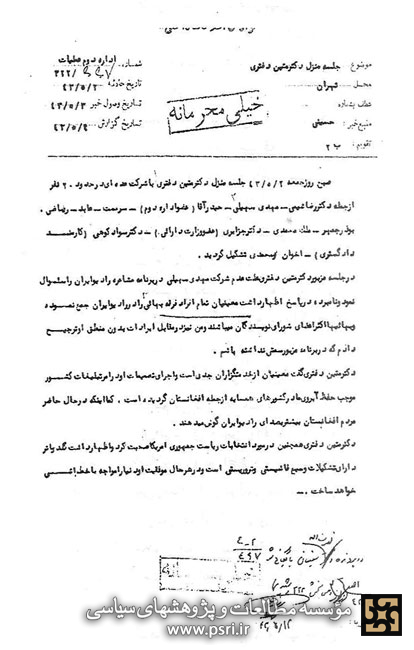 اداره دوم عملیات
موضوع : جلسه منزل دکتر متین دفتری
شماره : ۳۲۲/
محل : تهران
تاریخ حادثه : ۴۳/۵/۲
خیلی محرمانه
تاریخ وصول خبر : ۴۳/۵/۳
منبع خبر : حسینی
تاریخ گزارش : ۴۳/۵/۴
تقویم : ب ۲
صبح روز جمعه ۴۳/۵/۲ جلسه منزل دکتر متین دفتری با شرکت عده ای در حدود ۲۰ نفر
ازجمله دکتر رضا – مهدی سهیلی – حیدر آقا ( عضو اداره دوم ) – سرمست – عابد – ریاضی –
– ملک محمدی – دکتر جزایری ( عضو وزارت دارائی ) – دکتر سواد کوهی ( کارمند
دادگستری ) – اخوان و محمدی تشکیل گردید .
در جلسه مزبور دکتر متین دفتری علت عدم شرکت مهدی سهیلی در برنامه مشاعره رادیو ایران را سئوال
نمود و نامبرده در پاسخ اظهار داشت معینیان تمام افراد فرقه بهائی را در رادیو ایران جمع نموده
و بهائیها اکثر اعضای شورای نویسندگان میباشند و من نیز در مقابل ایرادات بدون منطق او ترجیح
دادم که در برنامه مزبور سمتی نداشته باشم .
دکتر متین دفتری گفت معینیان از خدمتگزاران جدی است و اجرای تصمیمات او در امر تبلیغات کشور
موجب حفظ آبروی ما در کشورهای همسایه از جمله افغانستان گردیده است . کما اینکه در حال حاضر
مردم افغانستان بیشتر بصدای رادیو ایران گوش میدهند .
دکتر متین دفتری همچنین در مورد انتخابات ریاست جمهوری امریکا صحبت کرد و اظهار داشت گلد واتر
دارای تشکیلات وسیع فاشیستی و تروریستی است و در هر حال موفقیت او دنیا را مواجه با خطر اتمی
خواهد ساخت . –
مؤسسه مطالعات و پژوهشهای سیاسی
www.psri.ir